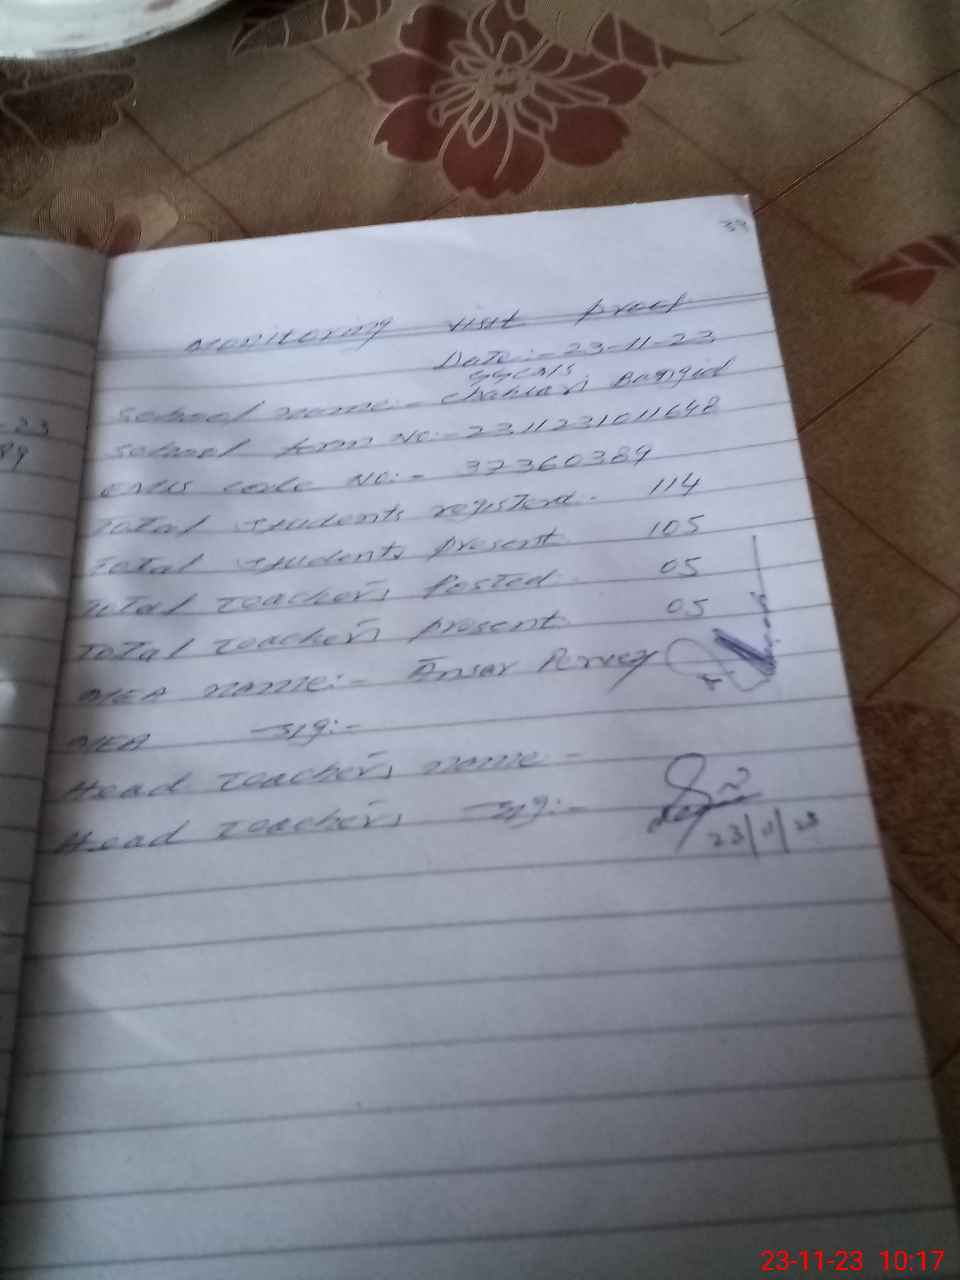 39
Monitoring visit proof
Date:- 23-11-23
School name:- Chahlari
School form No:- 2311231011648
EMIS code No:- 37360389
Total students registerd:- 114
Total students present 105
Total teachers Posted 05
Total teachers present 05
MEA name:- Ansar Pervez
MEA sig:-
Head teachers name -
Head teachers sig:-
23/11/23
-23
89
23-11-23 10:17